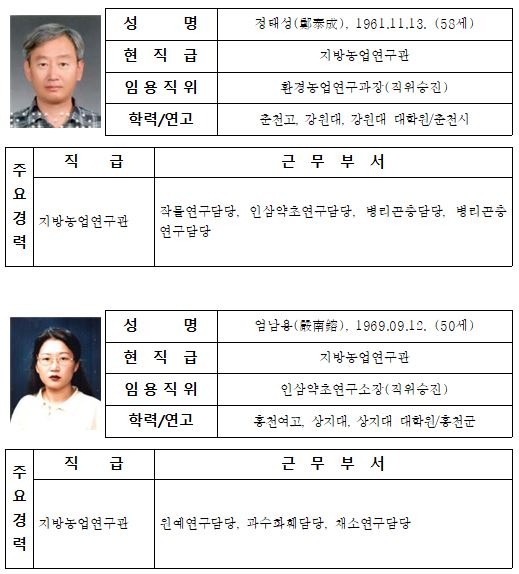 성 명 정태성(鄭泰成), 1961.11.13. (58세)
현 직 급 지방농업연구관
임 용 직 위 환경농업연구과장(직위승진)
학력/연고 춘천고, 강원대, 강원대 대학원/춘천시
주요경력 직 급 근 무 부 서
지방농업연구관 작물연구담당, 인삼약초연구담당, 병리곤충담당, 병리곤충
연구담당
성 명 엄남용(嚴南鎔), 1969.09.12. (50세)
현 직 급 지방농업연구관
임 용 직 위 인삼약초연구소장(직위승진)
학력/연고 홍천여고, 상지대, 상지대 대학원/홍천군
주요경력 직 급 근 무 부 서
지방농업연구관 원예연구담당, 과수화훼담당, 채소연구담당